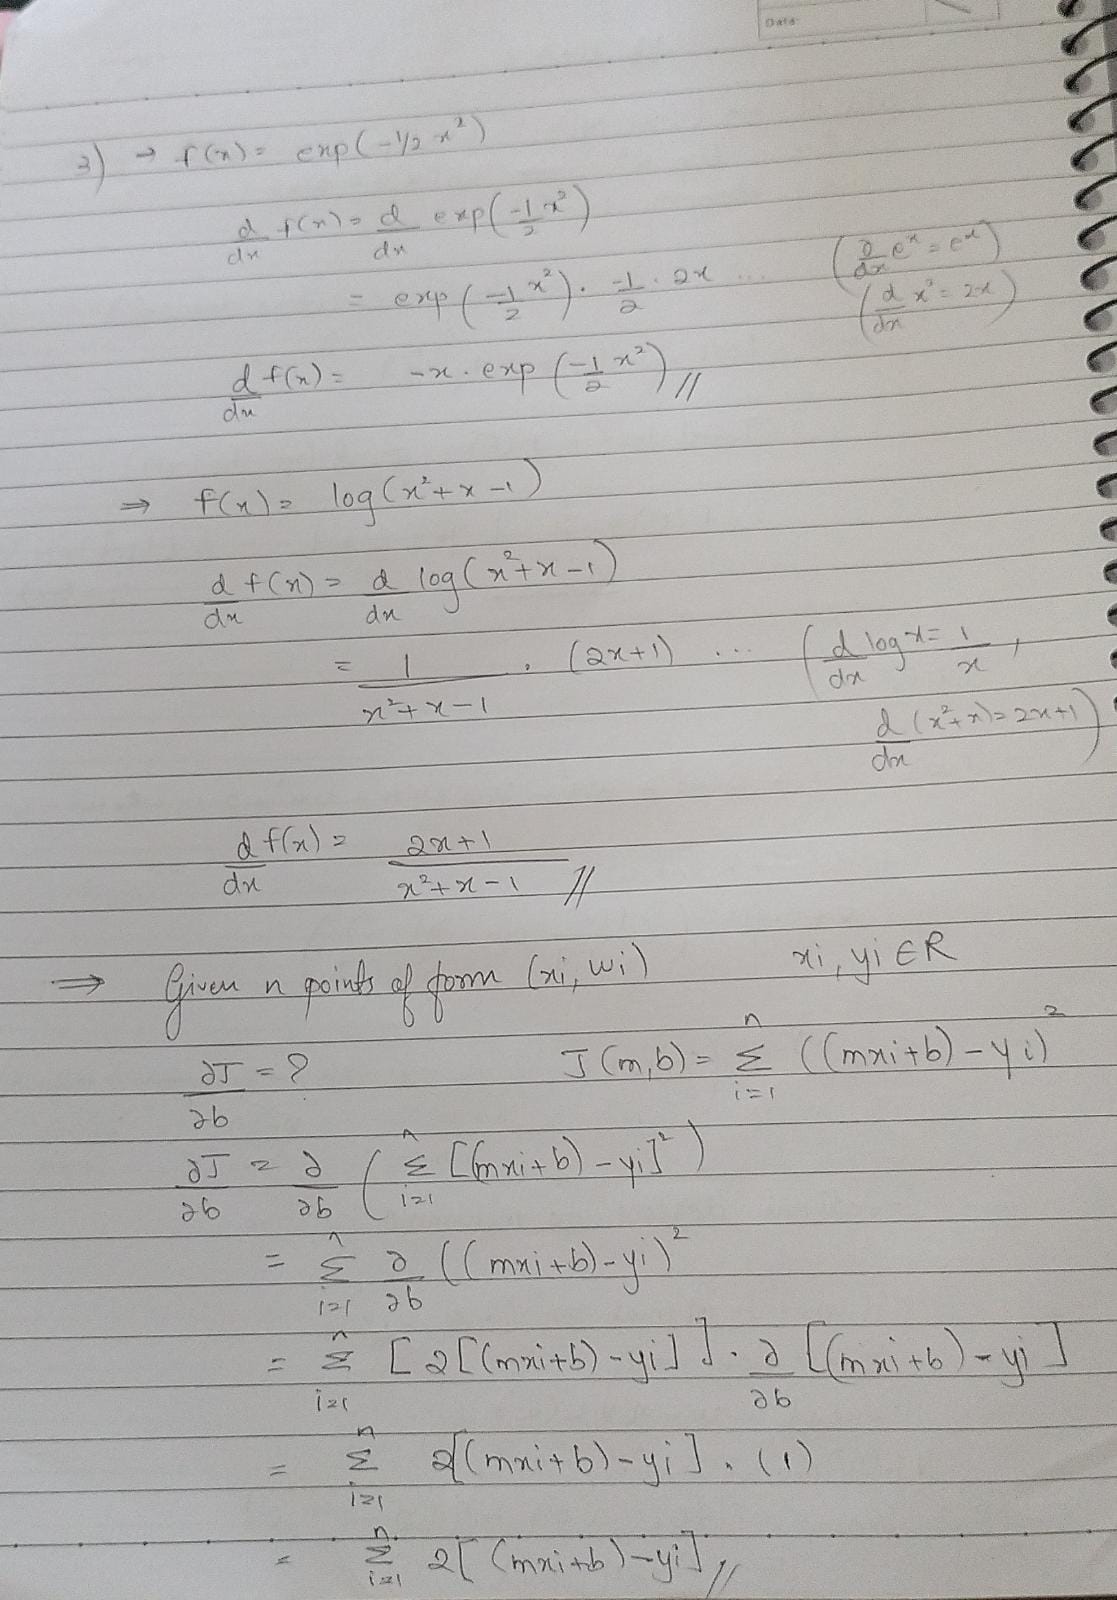 Date
3) → f(x) = exp(-1/2 x²)
d/dx f(x) = d/dx exp(-1/2 x²)
= exp(-1/2 x²) · -1/2 · 2x ... (∂/dx eˣ = eˣ)
(d/dx x² = 2x)
d/dx f(x) = -x · exp(-1/2 x²) //
⇒ f(x) = log(x²+x-1)
d/dx f(x) = d/dx log(x²+x-1)
= 1/(x²+x-1) · (2x+1) ... (d/dx log x = 1/x ,
d/dx (x²+x) = 2x+1)
d/dx f(x) = (2x+1)/(x²+x-1) //
⇒ Given n points of form (xi, wi) xi, yi ∈ R
∂J/∂b = ? J(m,b) = Σ_{i=1}^{n} ((mxi+b)-yi)²
∂J/∂b = ∂/∂b ( Σ_{i=1}^{n} [(mxi+b)-yi]² )
= Σ_{i=1}^{n} ∂/∂b ((mxi+b)-yi)²
= Σ_{i=1}^{n} [2[(mxi+b)-yi]] · ∂/∂b [(mxi+b)-yi]
= Σ_{i=1}^{n} 2[(mxi+b)-yi] · (1)
= Σ_{i=1}^{n} 2[(mxi+b)-yi] //